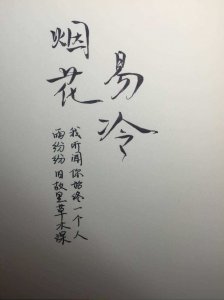 烟花
易冷
我听闻你始终一个人
雨纷纷旧故里草木深